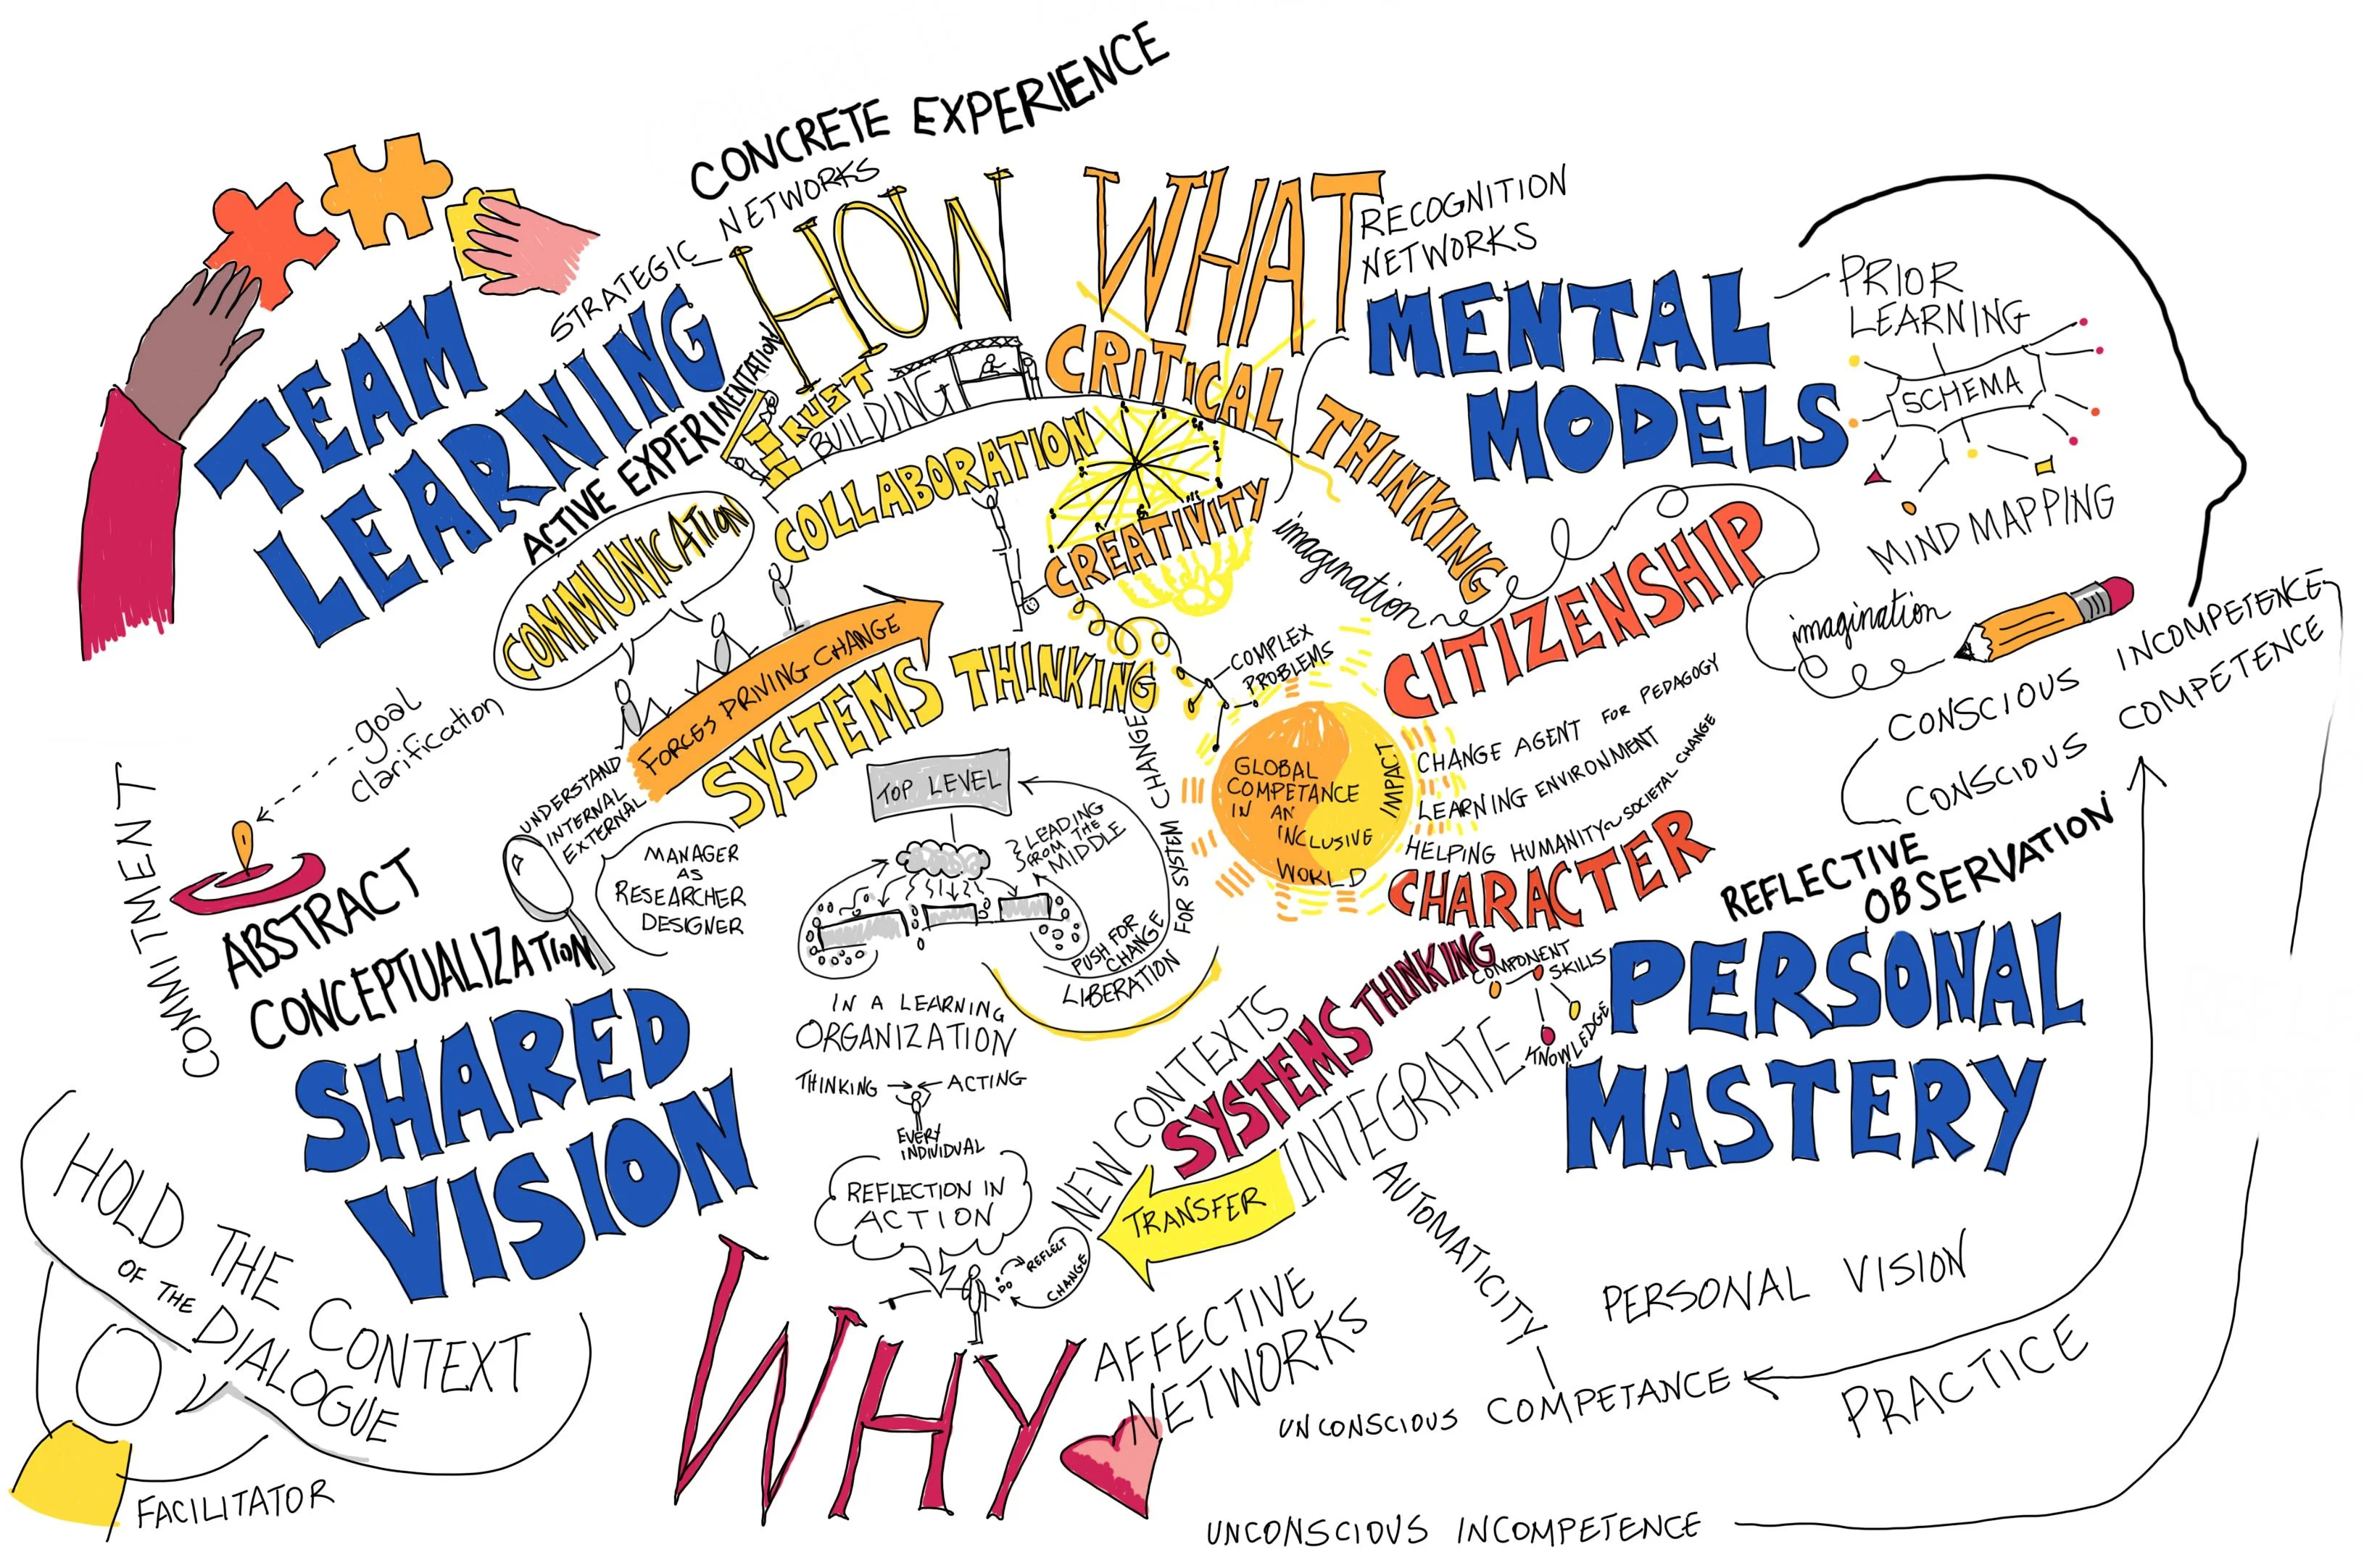 CONCRETE EXPERIENCE
STRATEGIC NETWORKS
HOW
WHAT
RECOGNITION
NETWORKS
TEAM
LEARNING
ACTIVE EXPERIMENTATION
TRUST
BUILDING
CRITICAL THINKING
MENTAL
MODELS
PRIOR
LEARNING
SCHEMA
MIND MAPPING
COMMUNICATION
COLLABORATION
CREATIVITY
imagination
CITIZENSHIP
imagination
CONSCIOUS INCOMPETENCE
CONSCIOUS COMPETENCE
goal
clarification
COMMITMENT
FORCES DRIVING CHANGE
SYSTEMS THINKING
COMPLEX
PROBLEMS
UNDERSTAND
INTERNAL
EXTERNAL
MANAGER
AS
RESEARCHER
DESIGNER
TOP LEVEL
LEADING
FROM THE
MIDDLE
PUSH FOR
CHANGE
LIBERATION FOR SYSTEM CHANGE
GLOBAL
COMPETANCE
IN AN
INCLUSIVE
WORLD
IMPACT
CHANGE AGENT FOR PEDAGOGY
LEARNING ENVIRONMENT
HELPING HUMANITY SOCIETAL CHANGE
CHARACTER
REFLECTIVE
OBSERVATION
ABSTRACT
CONCEPTUALIZATION
SHARED
VISION
IN A LEARNING
ORGANIZATION
THINKING ACTING
EVERY
INDIVIDUAL
REFLECTION IN
ACTION
DO
REFLECT
CHANGE
NEW CONTEXTS
SYSTEMS THINKING
COMPONENT
SKILLS
KNOWLEDGE
INTEGRATE
TRANSFER
PERSONAL
MASTERY
AUTOMATICITY
PERSONAL VISION
PRACTICE
UNCONSCIOUS COMPETANCE
UNCONSCIOUS INCOMPETENCE
WHY
AFFECTIVE
NETWORKS
HOLD THE CONTEXT
OF THE DIALOGUE
FACILITATOR